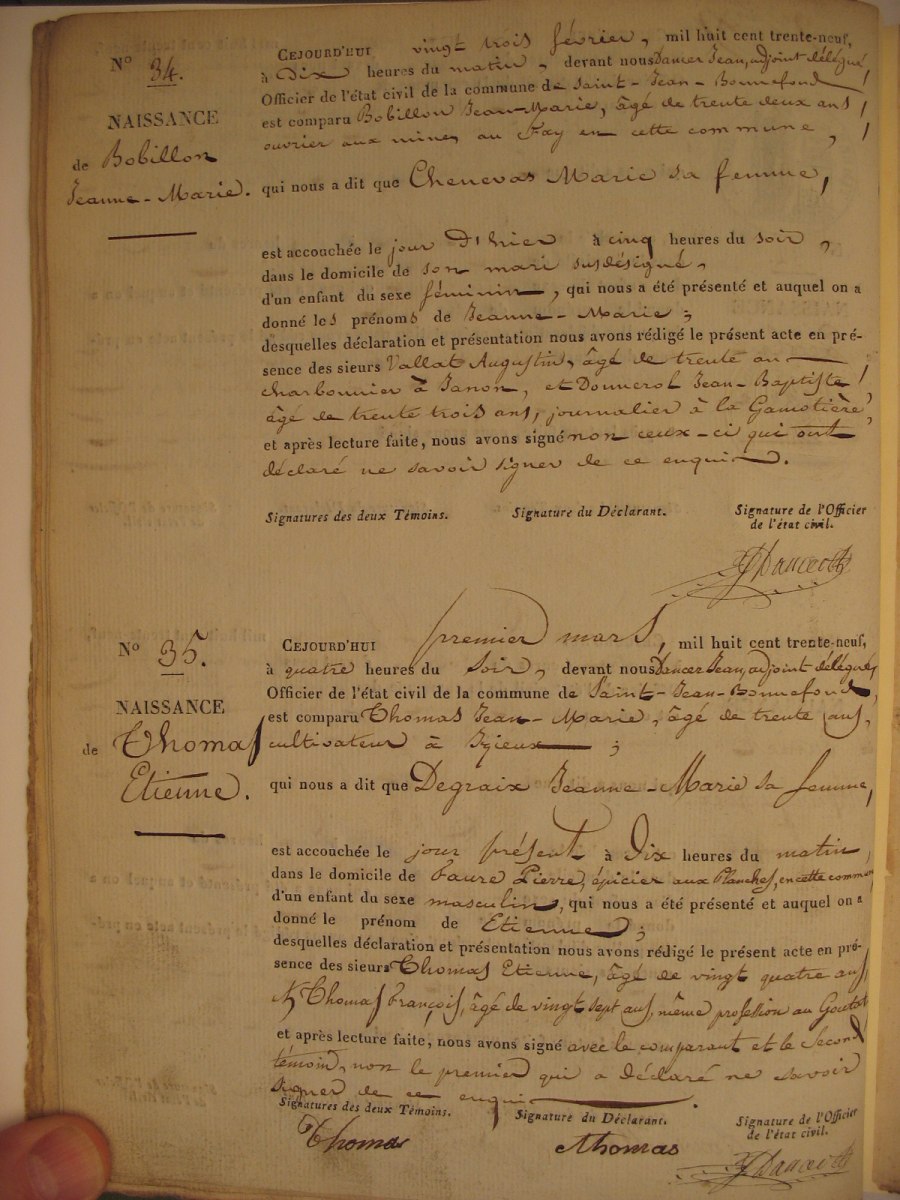 N° 34.
NAISSANCE
de Bobillon
Jeanne-Marie.
CEJOURD'HUI vingt trois février, mil huit cent trente-neuf,
à Dix heures du matin, devant nous Dancer Jean, adjoint délégué,
Officier de l'état civil de la commune de Saint-Jean-Bonnefond
est comparu Bobillon Jean-Marie, âgé de trente deux ans,
ouvrier aux mines au Fay en cette commune,
qui nous a dit que Chenevas Marie sa femme,
est accouchée le jour D'hier à cinq heures du soir,
dans le domicile de son mari susdésigné,
d'un enfant du sexe féminin, qui nous a été présenté et auquel on a
donné les prénoms de Jeanne-Marie;
desquelles déclaration et présentation nous avons rédigé le présent acte en pré-
sence des sieurs Vallat Augustin, âgé de trente ans
charbonnier à Janon, et Jean-Baptiste
âgé de trente trois ans, journalier à la Gamotière,
et après lecture faite, nous avons signé non ceux-ci qui ont
déclaré ne savoir signer de ce enquis.
Signatures des deux Témoins. Signature du Déclarant. Signature de l'Officier
de l'état civil.
N° 35.
NAISSANCE
de Thomas
Etienne.
CEJOURD'HUI premier mars, mil huit cent trente-neuf,
à quatre heures du soir, devant nous Dancer Jean, adjoint délégué,
Officier de l'état civil de la commune de Saint-Jean-Bonnefond,
est comparu Thomas Jean-Marie, âgé de trente ans,
cultivateur à Izieux;
qui nous a dit que Degraix Jeanne-Marie sa femme,
est accouchée le jour présent à Dix heures du matin,
dans le domicile de Faure Pierre, épicier aux Planches, en cette commune
d'un enfant du sexe masculin, qui nous a été présenté et auquel on a
donné le prénom de Etienne;
desquelles déclaration et présentation nous avons rédigé le présent acte en pré-
sence des sieurs Thomas Etienne, âgé de vingt quatre ans,
Thomas François, âgé de vingt sept ans, même profession au
et après lecture faite, nous avons signé avec le comparant et le Second
témoin, non le premier qui a déclaré ne savoir
signer de ce enquis.
Signatures des deux Témoins. Signature du Déclarant. Signature de l'Officier
de l'état civil.
Thomas Thomas